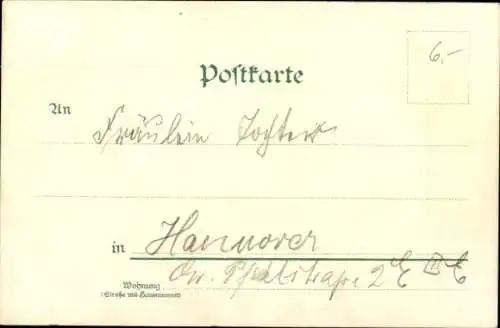 6,-
Postkarte
An Fräulein Tochter
in Hannover
Wohnung
(Straße und Hausnummer)
Gr. Pfahlstraße 2 E